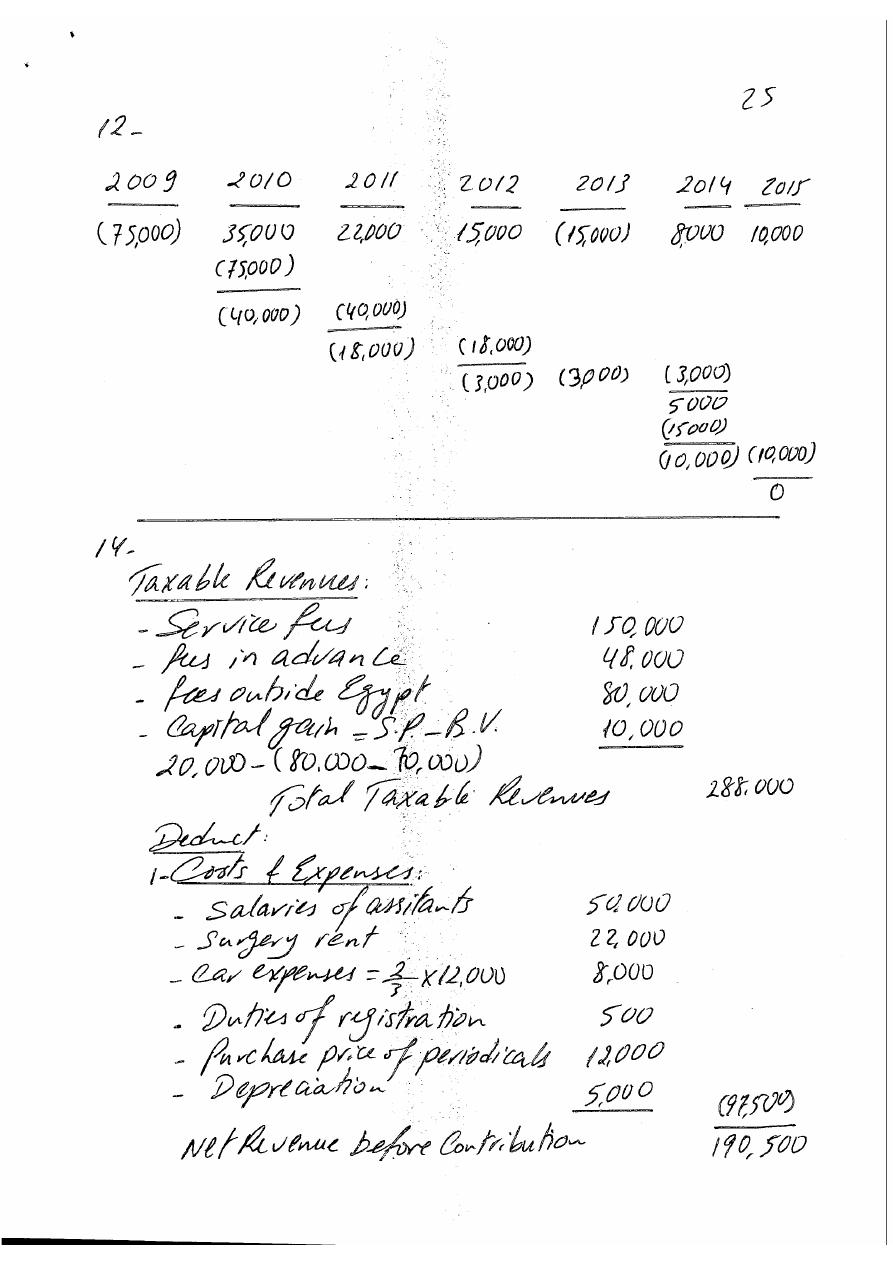 25
12-
2009 2010 2011 2012 2013 2014 2015
(75,000) 35,000 22,000 15,000 (15,000) 8,000 10,000
(75,000)
(40,000) (40,000)
(18,000) (18,000)
(3,000) (3,000) (3,000)
5000
(15000)
(10,000) (10,000)
0
14-
Taxable Revenues:
- Service fees 150,000
- fees in advance 48.000
- fees outside Egypt 80,000
- Capital gain = S.P. - B.V. 10,000
20,000 - (80.000 - 70,000)
Total Taxable Revenues 288.000
Deduct:
1- Costs & Expenses:
- Salaries of assitants 50.000
- Surgery rent 22,000
- Car expenses = 2/3 x 12,000 8,000
- Duties of registration 500
- Purchase price of periodicals 12,000
- Depreciation 5,000 (97,500)
Net Revenue before Contribution 190,500